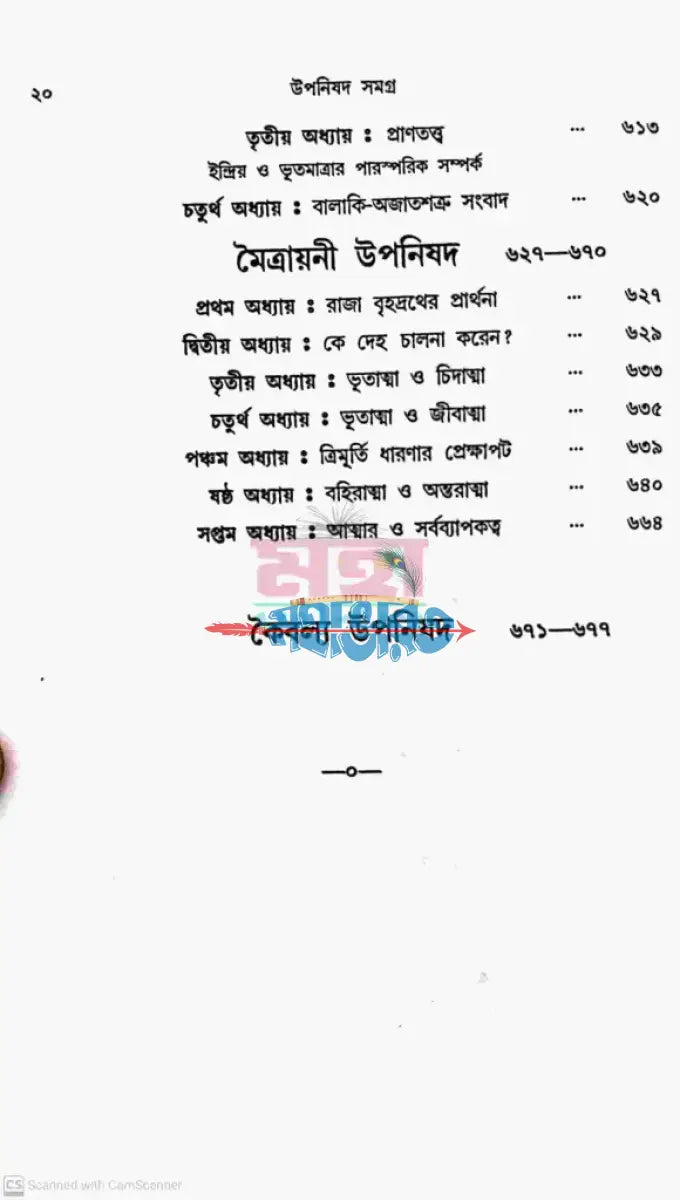 ২০
উপনিষদ সমগ্র
তৃতীয় অধ্যায় : প্রাণতত্ত্ব ... ৬১৩
ইন্দ্রিয় ও ভূতমাত্রার পারস্পরিক সম্পর্ক
চতুর্থ অধ্যায় : বালাকি-অজাতশত্রু সংবাদ ... ৬২০
মৈত্রায়নী উপনিষদ ৬২৭—৬৭০
প্রথম অধ্যায় : রাজা বৃহদ্রথের প্রার্থনা ... ৬২৭
দ্বিতীয় অধ্যায় : কে দেহ চালনা করেন? ... ৬২৯
তৃতীয় অধ্যায় : ভূতাত্মা ও চিদাত্মা ... ৬৩৩
চতুর্থ অধ্যায় : ভূতাত্মা ও জীবাত্মা ... ৬৩৫
পঞ্চম অধ্যায় : ত্রিমূর্তি ধারণার প্রেক্ষাপট ... ৬৩৯
ষষ্ঠ অধ্যায় : বহিরাত্মা ও অন্তরাত্মা ... ৬৪০
সপ্তম অধ্যায় : আত্মার ও সর্বব্যাপকত্ব ... ৬৬৪
মহা
মহাভারত
কৈবল্য উপনিষদ ৬৭১—৬৭৭
—০—
CS Scanned with CamScanner